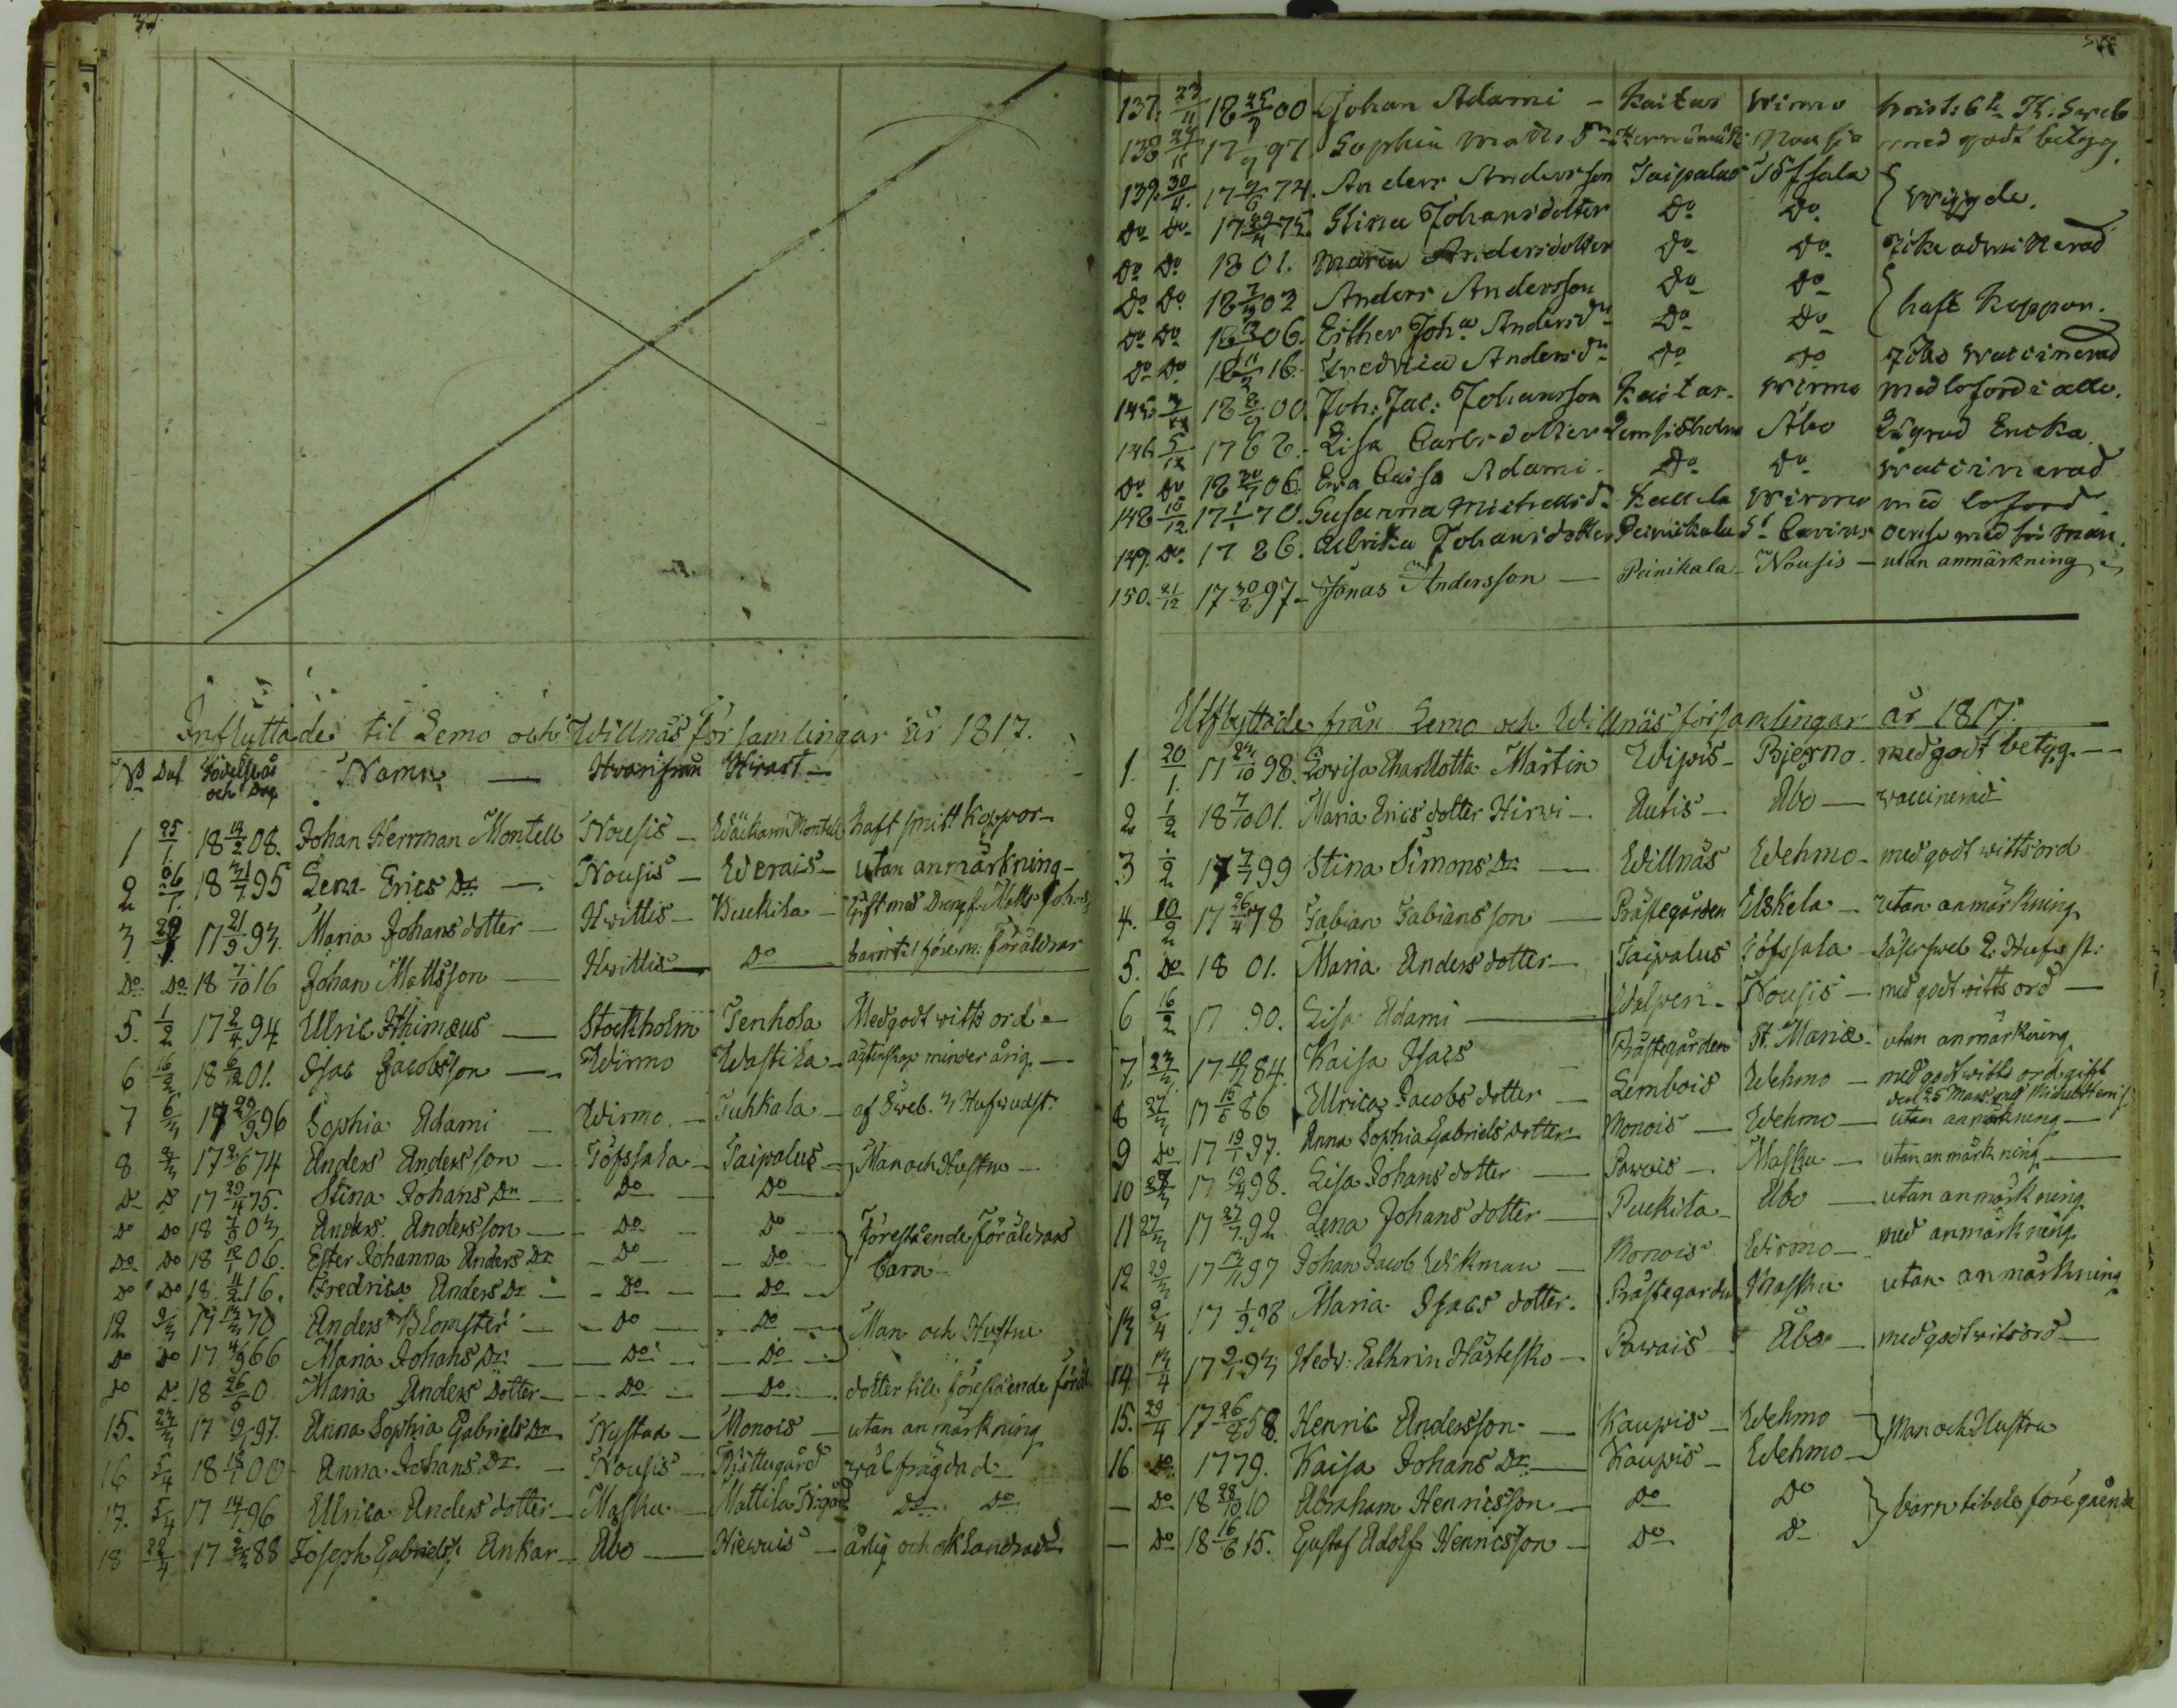 Inflyttade til Lemo och Willnäs församlingar år 1817.
No Dat Födelseår och Dag Namn Hvarifrån Hvart
1 25/1 18 14/2 08. Johan Herrman Montell Nousis Montell haft smittkoppor
2 26/1 18 31/1 95 Lena Erics Dr Nousis Werais utan anmärkning
3 29/1 17 21/9 93. Maria Johansdotter Hwittis Kuckila gift med Dreng Matts Johans
Do Do 18 7/10 16 Johan Mattsson Hwittis Do barn til föräldrar
5. 1/2 17 2/4 94 Ulric Stockholm Tenhola Med godt wittsord
6 16/2 18 6/12 01. Isac Jacobsson Wirmo Wastila minderårig
7 6/3 17 29/9 96 Sophia Adami Wirmo Tuhkala af Sweb. 3 Hufwudst.
8 8/3 17 2/6 74 Anders Andersson Töfssala Taipalus Man och Hustru
Do Do 17 29/4 75. Stina Johans Dr Do Do
Do Do 18 7/3 03 Anders Andersson Do Do Förestående Föräldrars
Do Do 18 12/1 06. Ester Johanna Anders Dr Do Do barn
Do Do 18 11/2 16. Fredrica Anders Dr Do Do
12 9/3 17 13/3 70 Anders Blomster Do Do Man och Hustru
Do Do 17 4/9 66 Maria Johans Dr Do Do
Do Do 18 26/5 0 Maria Anders Dotter Do Do dotter till förestående
15. 23/3 17 19/1 97. Anna Sophia Gabriels Dr Nystad Monois utan anmärkning
16 5/4 18 18/1 00 Anna Johans Dr Nousis wälfrägdad
17. 5/4 17 14/1 96 Ulrica Anders dotter Masku Mattila Do Do
18 22/4 17 2/3 88 Joseph Ankar Åbo Hiewais ärlig och oklandrad
137. 23/11 18 25/9 00 Johan Adami Kaitas Wirmo
138 24/11 17 /9 97 Sophia Matts Dr Nousis med godt betyg
139. 30/11. 17 2/6 74. Anders Andersson Taipalus Töfsala
Do Do 17 29/4 75. Stina Johansdotter Do Do
Do Do 1801. Maria Andersdotter Do Do icke admitterad
Do Do 18 7/3 03 Anders Andersson Do Do haft koppor.
Do Do 18 12/1 06. Esther Joha Anders Dr Do Do
Do Do 18 11/2 16. Fredrica Anders Dr Do Do icke waccinerad
145. 18 00. Joh: Jac: Johansson Kaitas Wirmo med loford i allo.
146. 5/12 1768. Lisa Carlsdotter Lemsisholm Åbo Encka
Do Do 18 30/7 06 Eva Caisa Adami Do Do waccinerad
148 10/12 17 1/1 70. Susanna Michels Dr Wirmo med loford
149. Do 1786. Ulrika Johansdotter Peinikala
150. 21/12 17 30/8 97 Jonas Andersson Peinikala Nousis utan anmärkning
Utflyttade från Lemo och Willnäs församlingar år 1817.
1. 20/1. 17 24/10 98. Lovisa Charllotta Martin Wipis Bjerno. med godt betyg.
2 1/2 18 7/10 01. Maria Ericsdotter Hirwi Autis Åbo vaccinerad
3 1/2 17 7/7 99 Stina Simons Dr Willnäs Wehmo med godt wittsord
4. 10/2 17 26/4 78 Fabian Fabiansson Prästegården Uskela utan anmärkning
5. Do 18 01. Maria Anders dotter Taipalus Töfssala
6 16/2 17 90. Lisa Adami Nousis med godt wittsord
7. 23/3 17 84. Kaisa Isacs Prästegården St. Mariæ utan anmärkning
8 27/3 17 15/5 86 Ulrica Jacobs dotter Lembois Wehmo med godt wittsord gift
den 25 Mars
9 Do 17 19/1 97. Anna Sophia Gabriels dotter Monois Wehmo utan anmärkning
10 28/3 17 19/4 98. Lisa Johans dotter Pawais Masku utan anmärkning
11 27/3 17 27/7 92 Lena Johans dotter Puckila Åbo utan anmärkning
12 29/3 17 13/11 97 Johan Jacob Wikman Monois Wirmo med anmärkning
13 2/4 17 1/9 98 Maria Isacs dotter. Prästegården Masku utan anmärkning
14 13/4 17 2/1 93 Hedv: Cathrin Hästesko Pawais Åbo med godt witsord
15. 29/4 17 26/8 58. Henric Andersson Kaupis Wehmo Man och Hustru
16 Do 1779. Kaisa Johans Dr Kaupis Wehmo
Do 18 28/10 10 Abraham Henricsson Do Do barn til de föregående
Do 18 16/6 15. Gustaf Adolf Henricsson Do Do